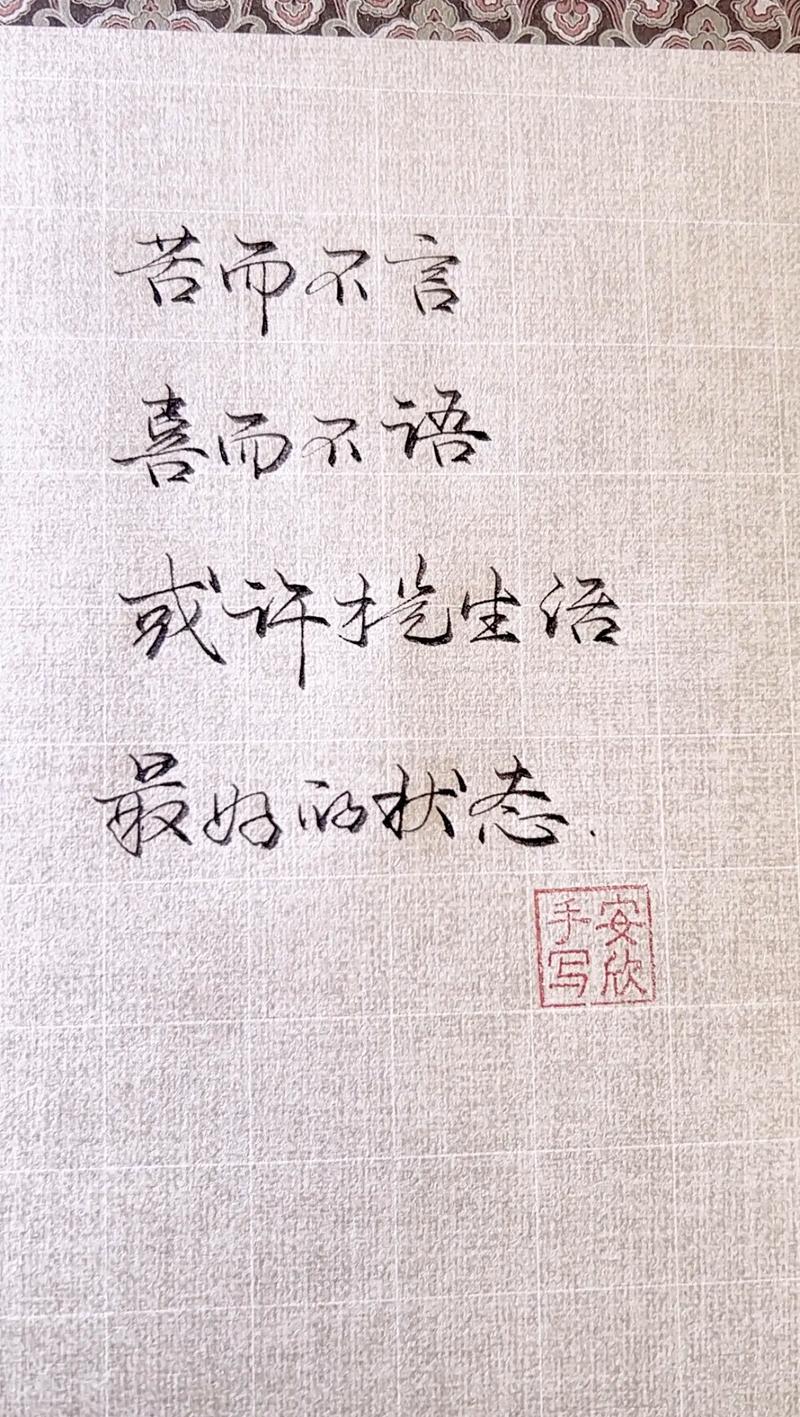 苦而不言
喜而不语
或许才是生活
最好的状态.
安欣
手写